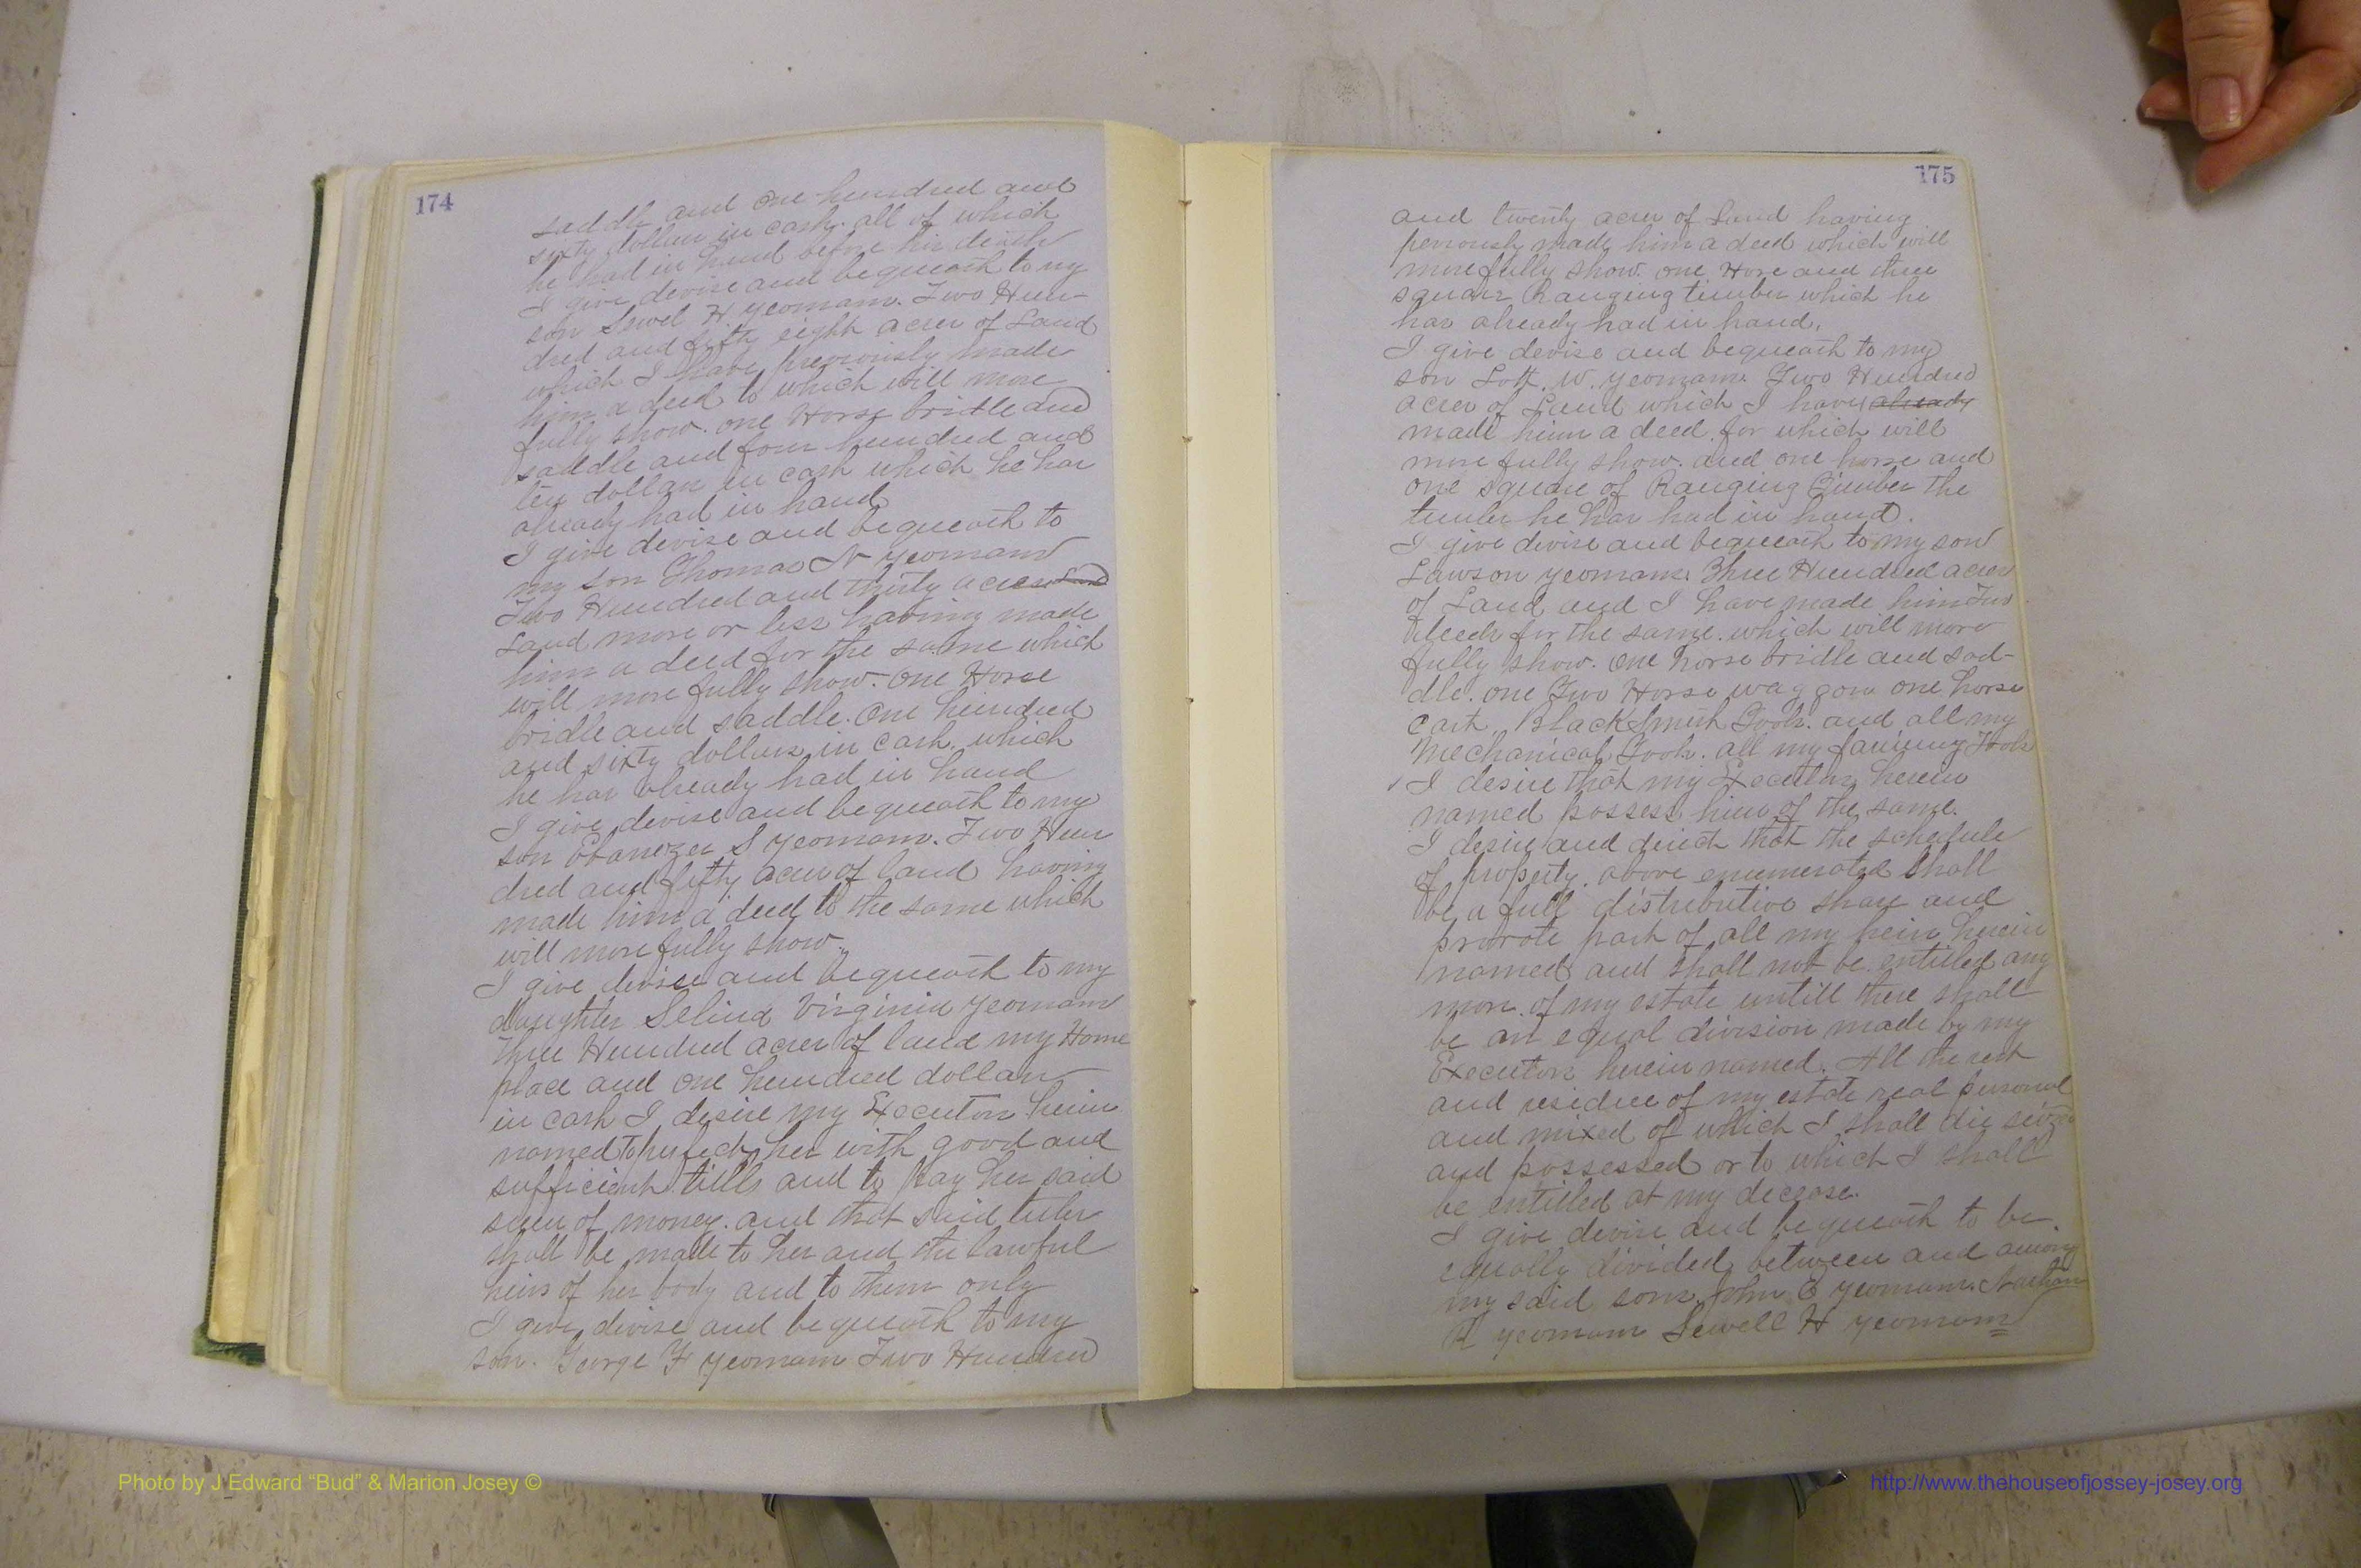 174
saddle and One hundred and
sixty dollars in cash. all of which
he had in hand before his death
I give devise and bequeath to my
son Sewel H Yeomans. Two Hun-
dred and fifty eight acres of Land
which I have previously made
him a deed to which will more
fully show. one Horse bridle and
saddle and four hundred and
ten dollars in cash which he has
already had in hand
I give devise and bequeath to
my son Thomas N Yeomans
Two Hundred and thirty acres
Land more or less having made
him a deed for the same which
will more fully show. One Horse
bridle and saddle. One hundred
and sixty dollars in cash. which
he has already had in hand
I give devise and bequeath to my
son Ebanezer S Yeomans. Two Hun
dred and fifty acres of land having
made him a deed to the same which
will more fully show.
I give devise and bequeath to my
daughter Selina Virginia Yeomans
Three Hundred acres of land my Home
place and one hundred dollars
in cash I desire my Executors herein
named to perfect her with good and
sufficient titles and to pay her said
sum of money. and that said titles
shall be made to her and the lawful
heirs of her body and to them only
I give devise and bequeath to my
son. George F Yeomans Two Hundred
175
and twenty acres of Land having
previously made him a deed which will
more fully show. one Horse and three
squares Ranging timber which he
has already had in hand.
I give devise and bequeath to my
son Lott. W. Yeomans Two Hundred
acres of Land which I have already
made him a deed for which will
more fully show. and one horse and
one square of Ranging Timber the
timber he has had in hand.
I give devise and bequeath to my son
Lawson Yeomans. Three Hundred acres
of Land and I have made him Two
deeds for the same. which will more
fully show. One horse bridle and sad-
dle. one Two Horse waggon one horse
cart. Black Smith Tools. and all my
Mechanical Tools. all my farming Tools
I desire that my Executors herein
named possess him of the same.
I desire and direct that the schedule
of property. above enumerated shall
be a full distributive share and
prorote part of all my heirs herein
named and shall not be entitled any
more of my estate untill there shall
be an equal division made by my
Executors herein named. All the rest
and residue of my estate real personal
and mixed of which I shall die seized
and possessed or to which I shall
be entitled at my decease.
I give devise and bequeath to be
equally divided between and among
my said sons. John E Yeomans. Nathan
R Yeomans Sewell H Yeomans
Photo by J Edward “Bud” & Marion Josey ©
http://www.thehouseofjossey-josey.org